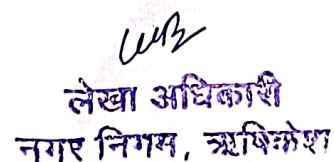 लेखा अधिकारी
नगर निगम, ऋषिकेश